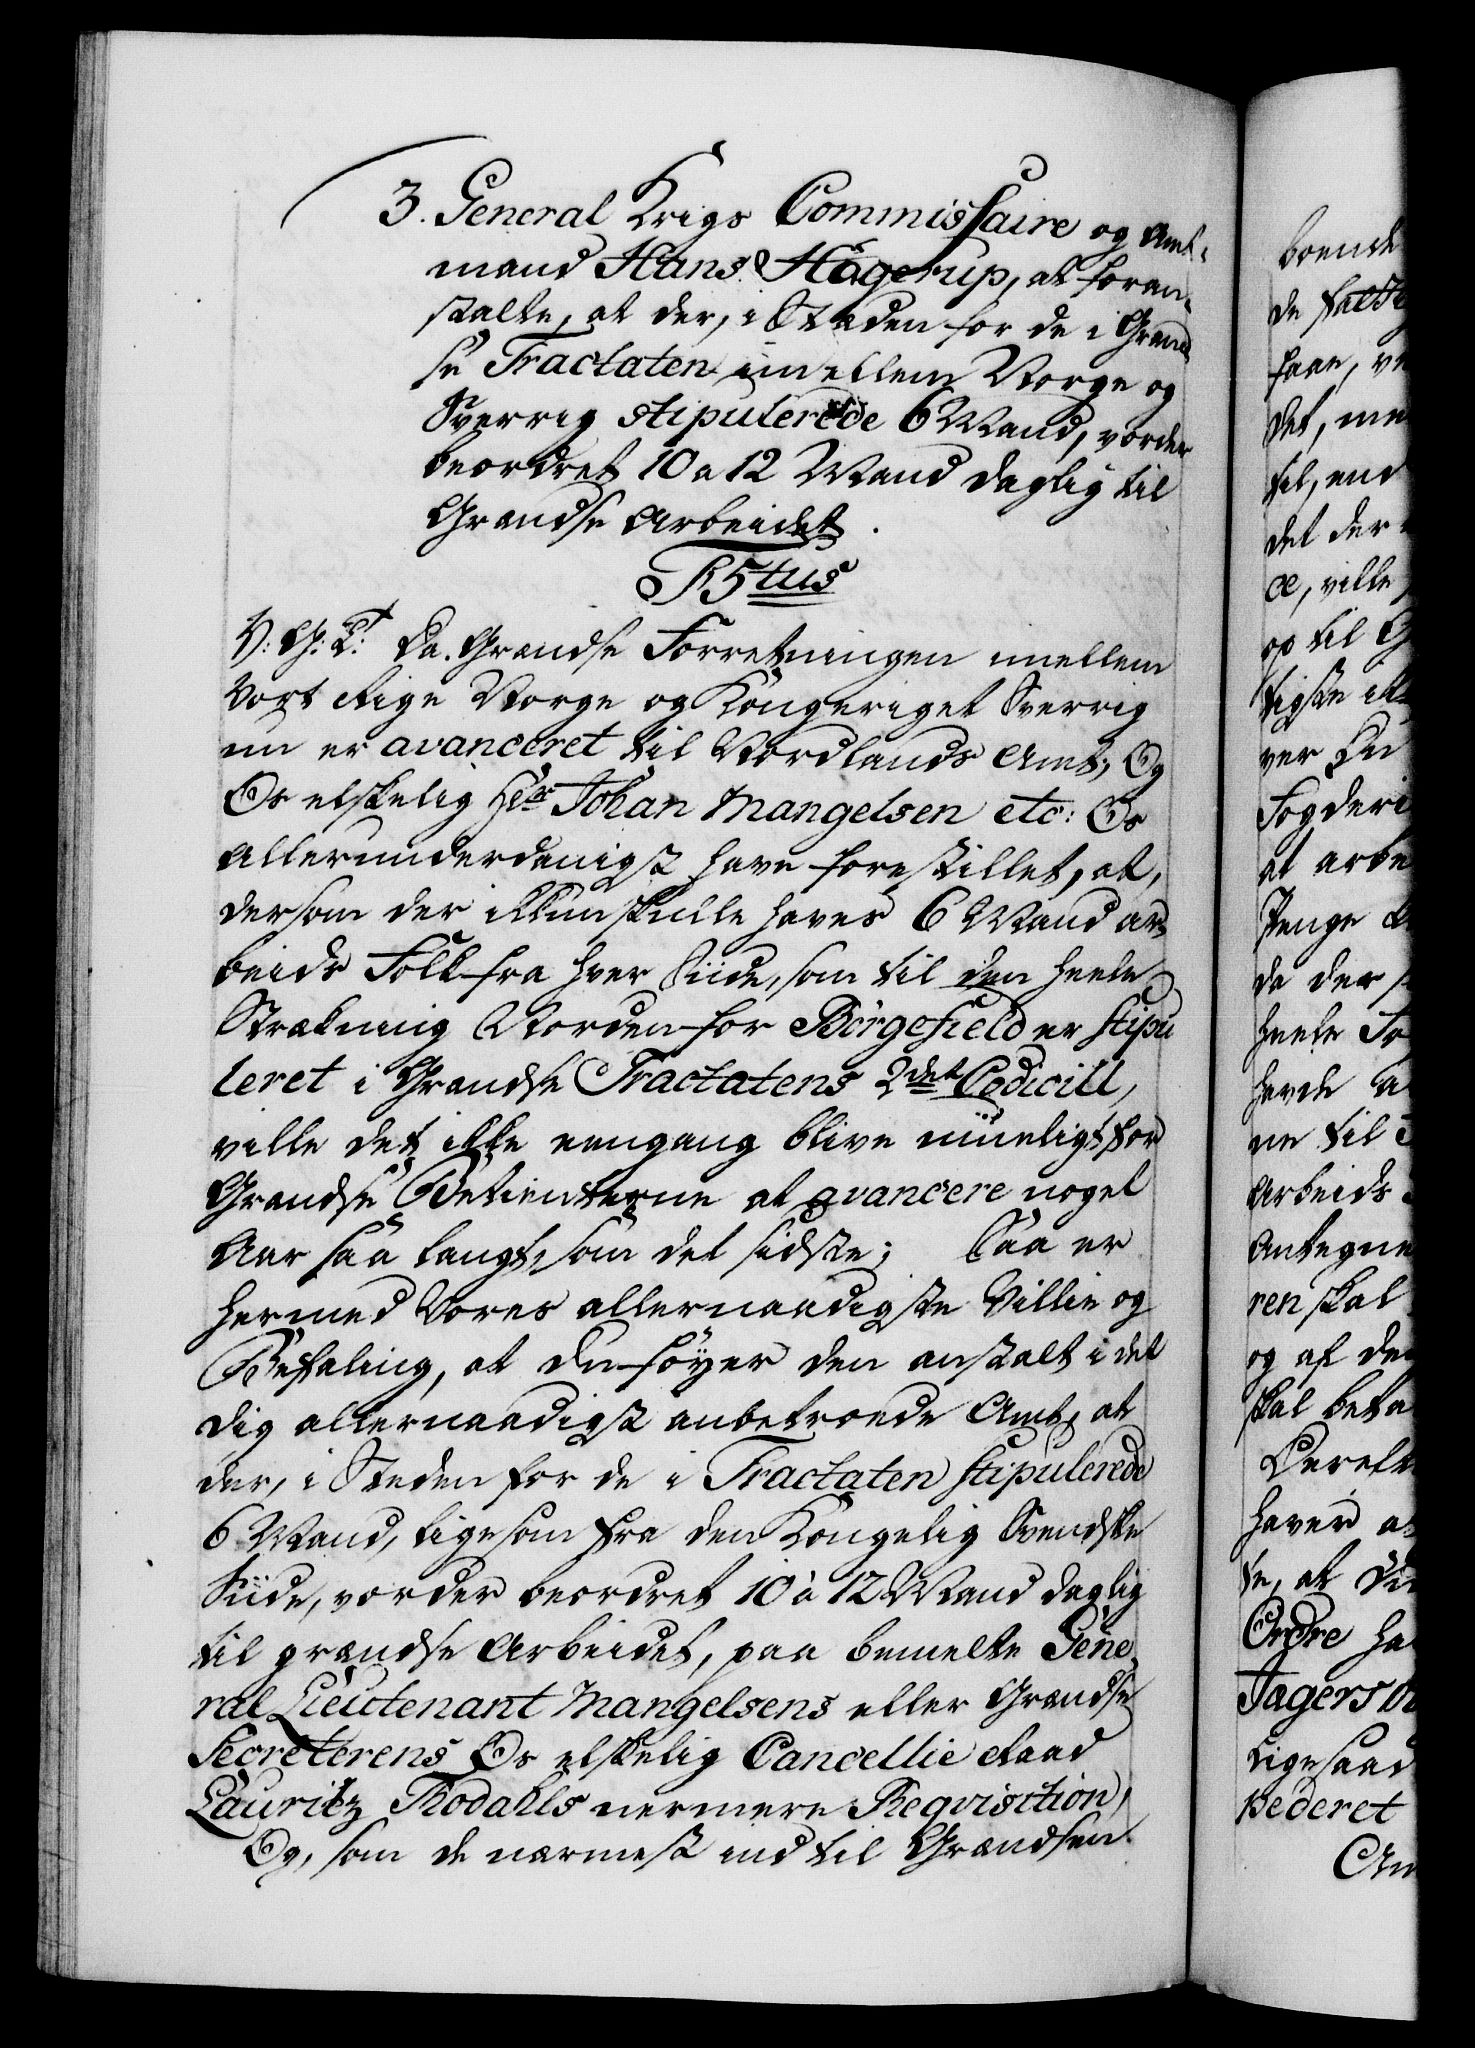 3. General Krigs Commissaire og Amt-
mand Hans Hagerup, at foran-
stalte, at der, i Stæden for de i Grænd
se Tractaten imellem Norge og
Sverrig stipulerede 6 Mand, vorder
beordret 10 a 12 Mand daglig til
Grændse Arbeidet.
F5tus
V: G: T: Da Grændse Forretningen imellem
Vort Rige Norge og Kongeriget Sverrig
nu er avanceret til Nordlands Amt, Og
Os elskelig Hr Johan Mangelsen etc: Os
allerunderdanigst have forestillet, at,
dersom der ikkun skulle haves 6 Mand ar-
beids Folk fra hver Siide, som til den heele
Strækning Norden for Børgefield er stipu
leret i Grændse Tractatens 2det Codicill,
ville det ikke eengang blive mueligt for
Grændse Betienterne at avancere noget
Aar saa langt, som det sidste; Saa er
hermed Vores allernaadigste Villie og
Befaling, at du føyer den anstalt i det
dig allernaadigst anbetroede Amt, at
der, i Steden for de i Tractaten stipulerede
6 Mand, ligesom fra den Kongelig Svendske
Siide, vorder beordret 10 à 12 Mand daglig
til grændse Arbeidet, paa bemelte Gene
ral Lieutenant Mangelsens eller Grændse
Secreterens Os elskelig Cancellie Raad
Lauritz Thodahls nermere Reqvisition,
Og, som de nærmest ind til Grændsen
boende
de
faae,
det,
til, end
det der
ville
op til
ver
Fogderi
at arbe
Penge
da der
heele
havde
ne til
Arbeids
Antegne
ren skal
og af den
skal beta
haver
se, at
Ordre ha
Jagers
Ligesaa
pederet